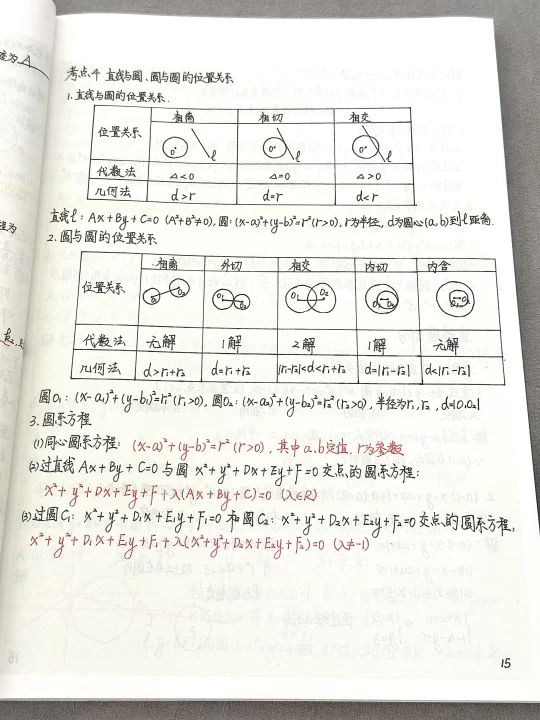 度为 A
考点4 直线与圆、圆与圆的位置关系
1.直线与圆的位置关系.
位置关系 相离 相切 相交
O ℓ O ℓ O ℓ
代数法 △<0 △=0 △>0
几何法 d>r d=r d<r
直线ℓ: Ax+By+C=0 (A²+B²≠0), 圆: (x-a)²+(y-b)²=r²(r>0), r为半径, d为圆心(a,b)到ℓ距离.
2.圆与圆的位置关系
位置关系 相离 外切 相交 内切 内含
O₁ O₂ O₁ O₂ O₁ O₂ O₁ O₂ O₁ O₂
代数法 无解 1解 2解 1解 无解
几何法 d>r₁+r₂ d=r₁+r₂ |r₁-r₂|<d<r₁+r₂ d=|r₁-r₂| d<|r₁-r₂|
圆O₁: (x-a₁)²+(y-b₁)²=r₁²(r₁>0), 圆O₂: (x-a₂)²+(y-b₂)²=r₂²(r₂>0), 半径为r₁, r₂, d=|O₁O₂|
3.圆系方程
(1)同心圆系方程: (x-a)²+(y-b)²=r²(r>0), 其中a、b定值, r为参数
(2)过直线Ax+By+C=0与圆x²+y²+Dx+Ey+F=0交点的圆系方程:
x²+y²+Dx+Ey+F+λ(Ax+By+C)=0 (λ∈R)
(3)过圆C₁: x²+y²+D₁x+E₁y+F₁=0和圆C₂: x²+y²+D₂x+E₂y+F₂=0交点的圆系方程,
x²+y²+D₁x+E₁y+F₁+λ(x²+y²+D₂x+E₂y+F₂)=0 (λ≠-1)
15